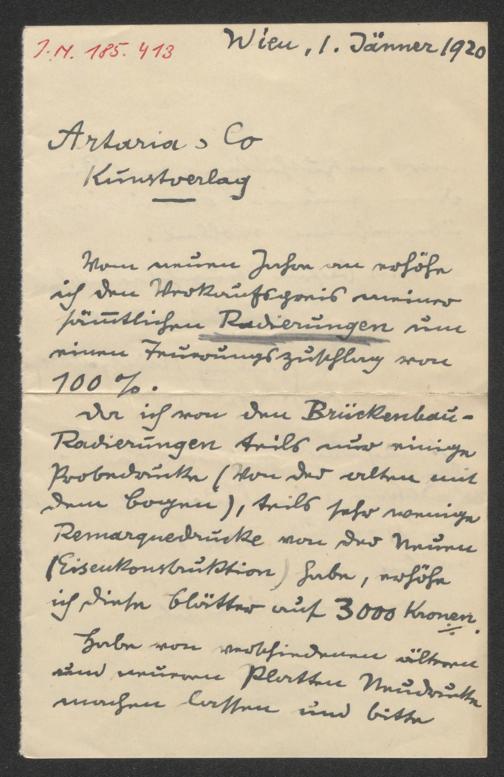 J.N. 185.413
Wien, 1. Jänner 1920
Artaria & Co
Kunstverlag
Vom neuen Jahre an erhöhe
ich den Verkaufspreis meiner
sämmtlichen Radierungen um
einen Teuerungszuschlag von
100 %.
Da ich von den Brückenbau-
Radierungen teils nur einige
Probedrucke (von der alten mit
dem Bogen), teils sehr wenige
Remarquedrucke von der Neuen
(Eisenkonstruktion) habe, erhöhe
ich diese Blätter auf 3000 Kronen.
Habe von verschiedenen älteren
und neueren Platten Neudrucke
machen lassen und bitte